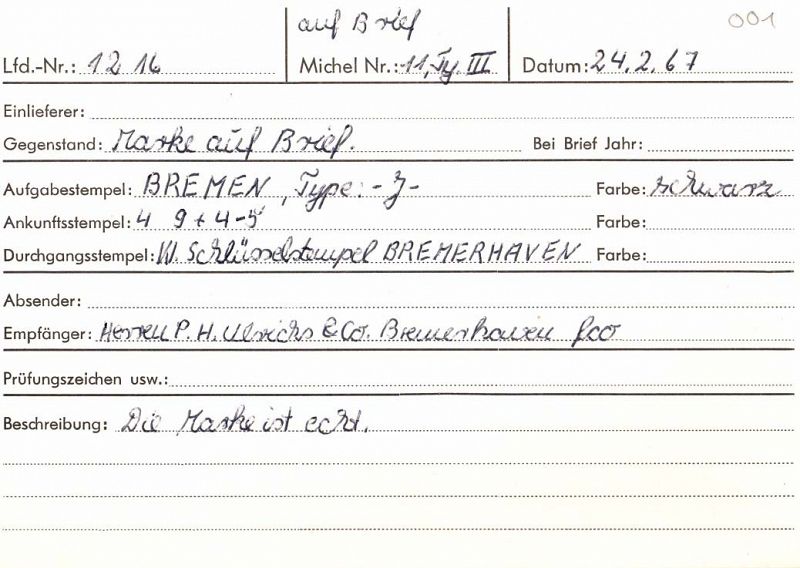 auf Brief 001
Lfd.-Nr.: 12 16 Michel Nr.: 11, Ty. III Datum: 24.2.67
Einlieferer:
Gegenstand: Marke auf Brief. Bei Brief Jahr:
Aufgabestempel: BREMEN, Type: -J- Farbe: schwarz
Ankunftsstempel: 4 9 + 4-5 Farbe:
Durchgangsstempel: W. Schlüsselstempel BREMERHAVEN Farbe:
Absender:
Empfänger: Herren P. H. Ulrichs & Co. Bremerhaven fco
Prüfungszeichen usw.:
Beschreibung: Die Marke ist echt.